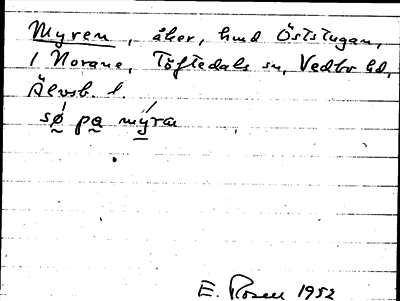 Myren, åker, hmd Öststugan,
i Norane, Töftedals sn, Vedbo hd,
Älvsb. l.
sø pa myra
E. Rosell 1952